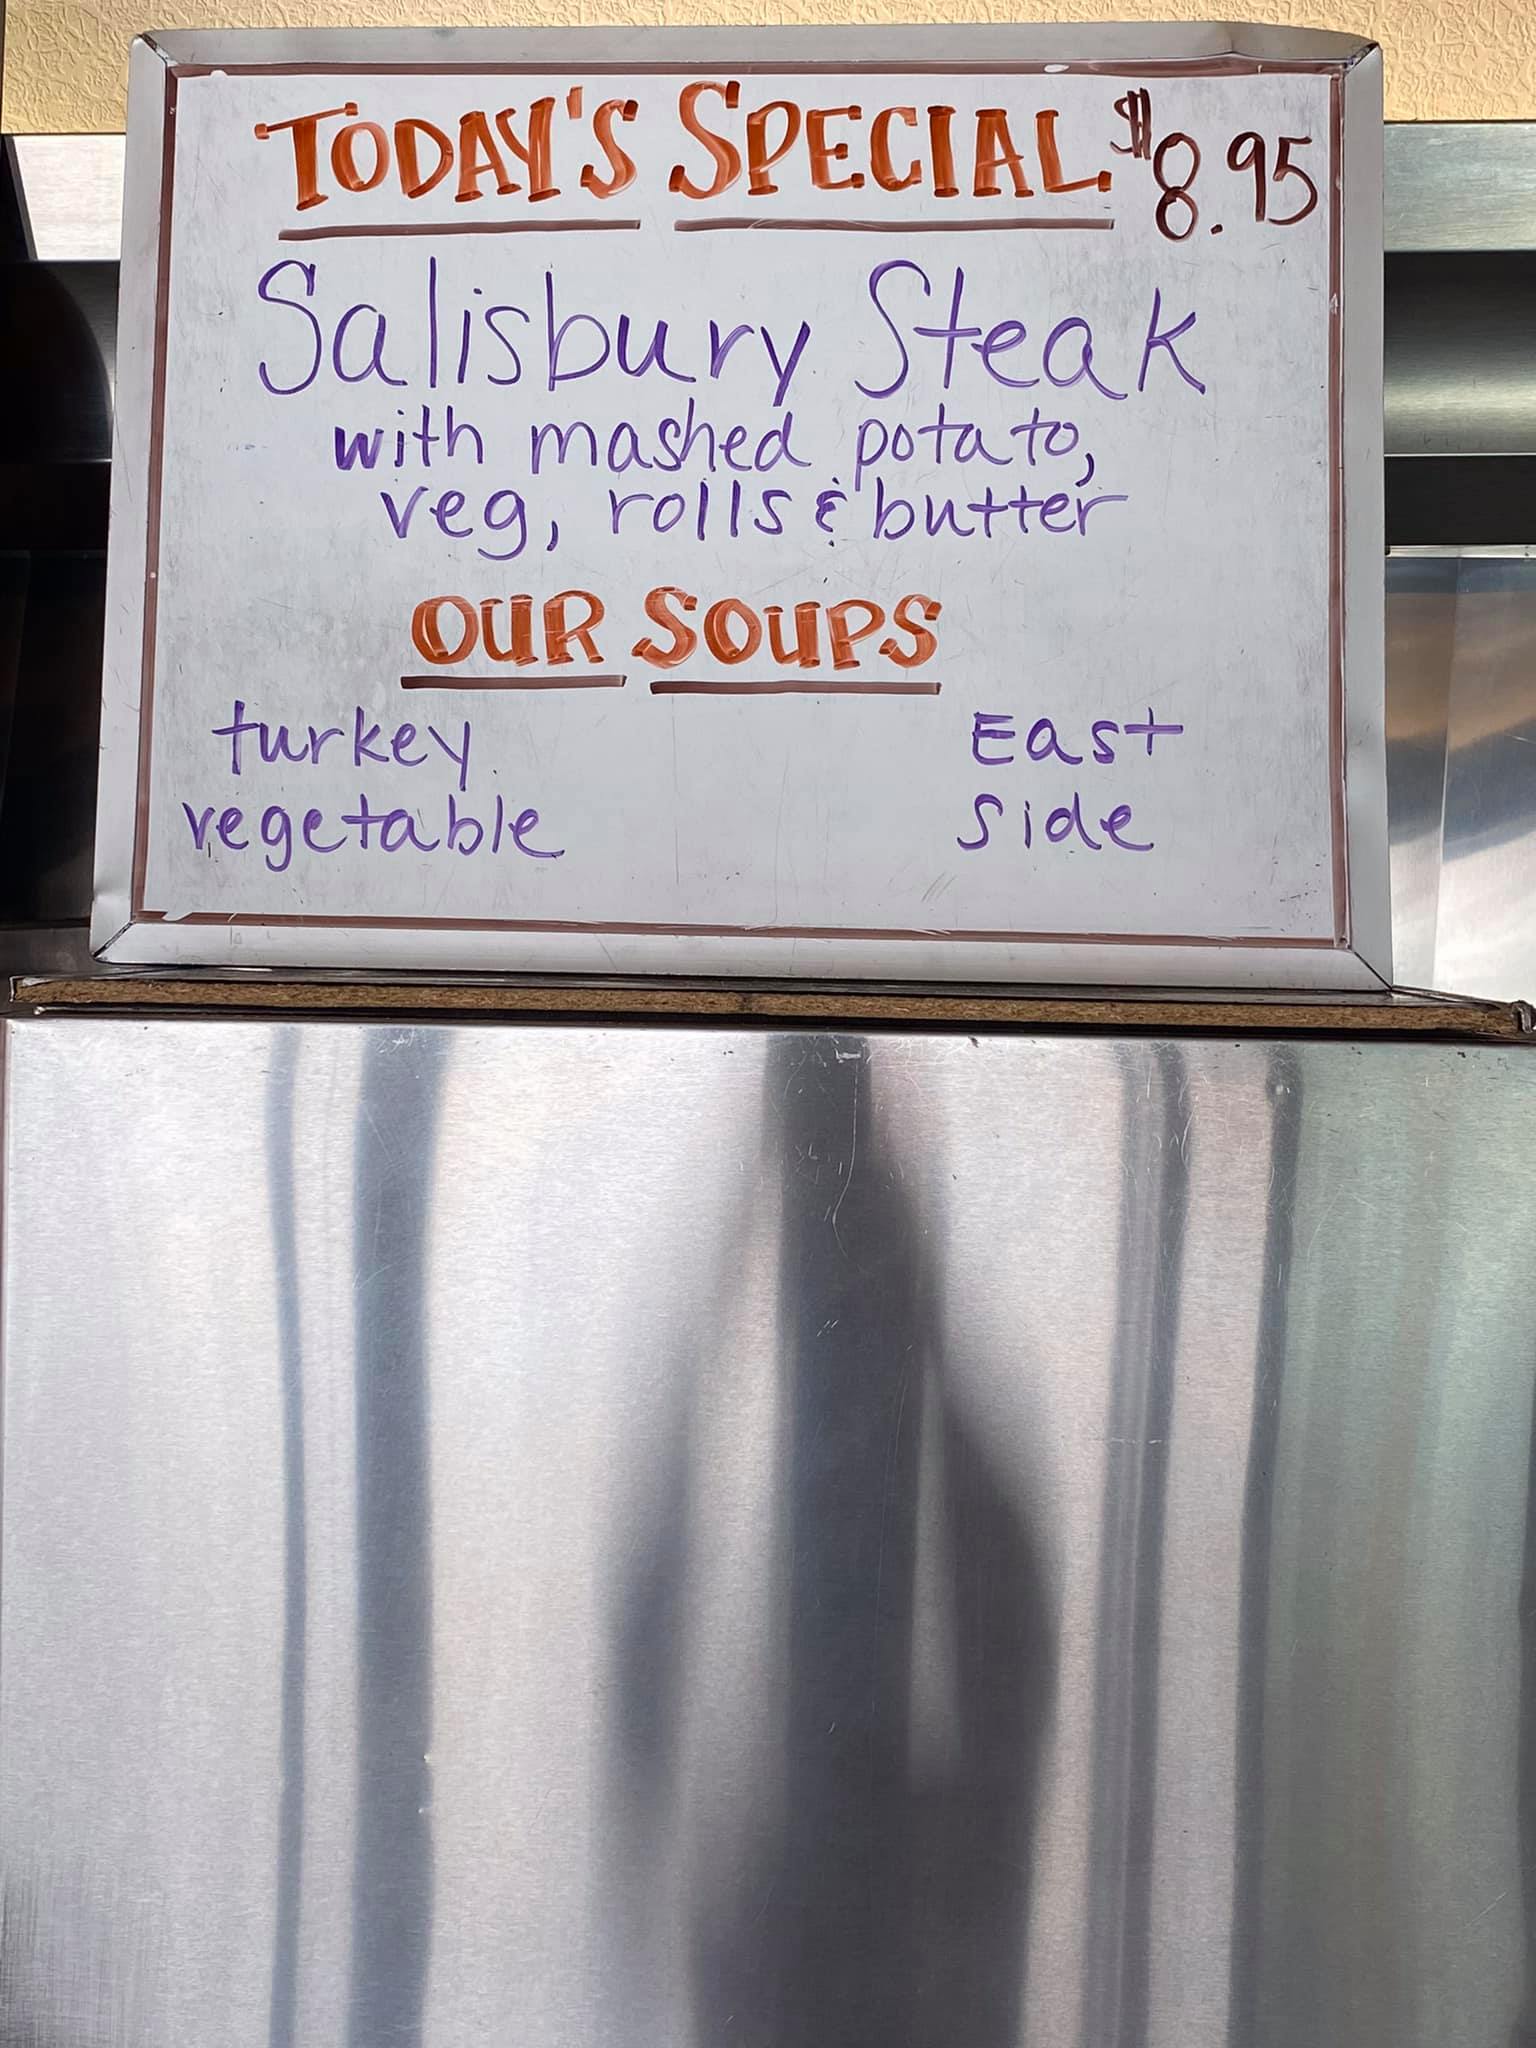 TODAY'S SPECIAL $8.95
Salisbury Steak
with mashed potato,
veg, rolls & butter
OUR SOUPS
turkey East
vegetable Side